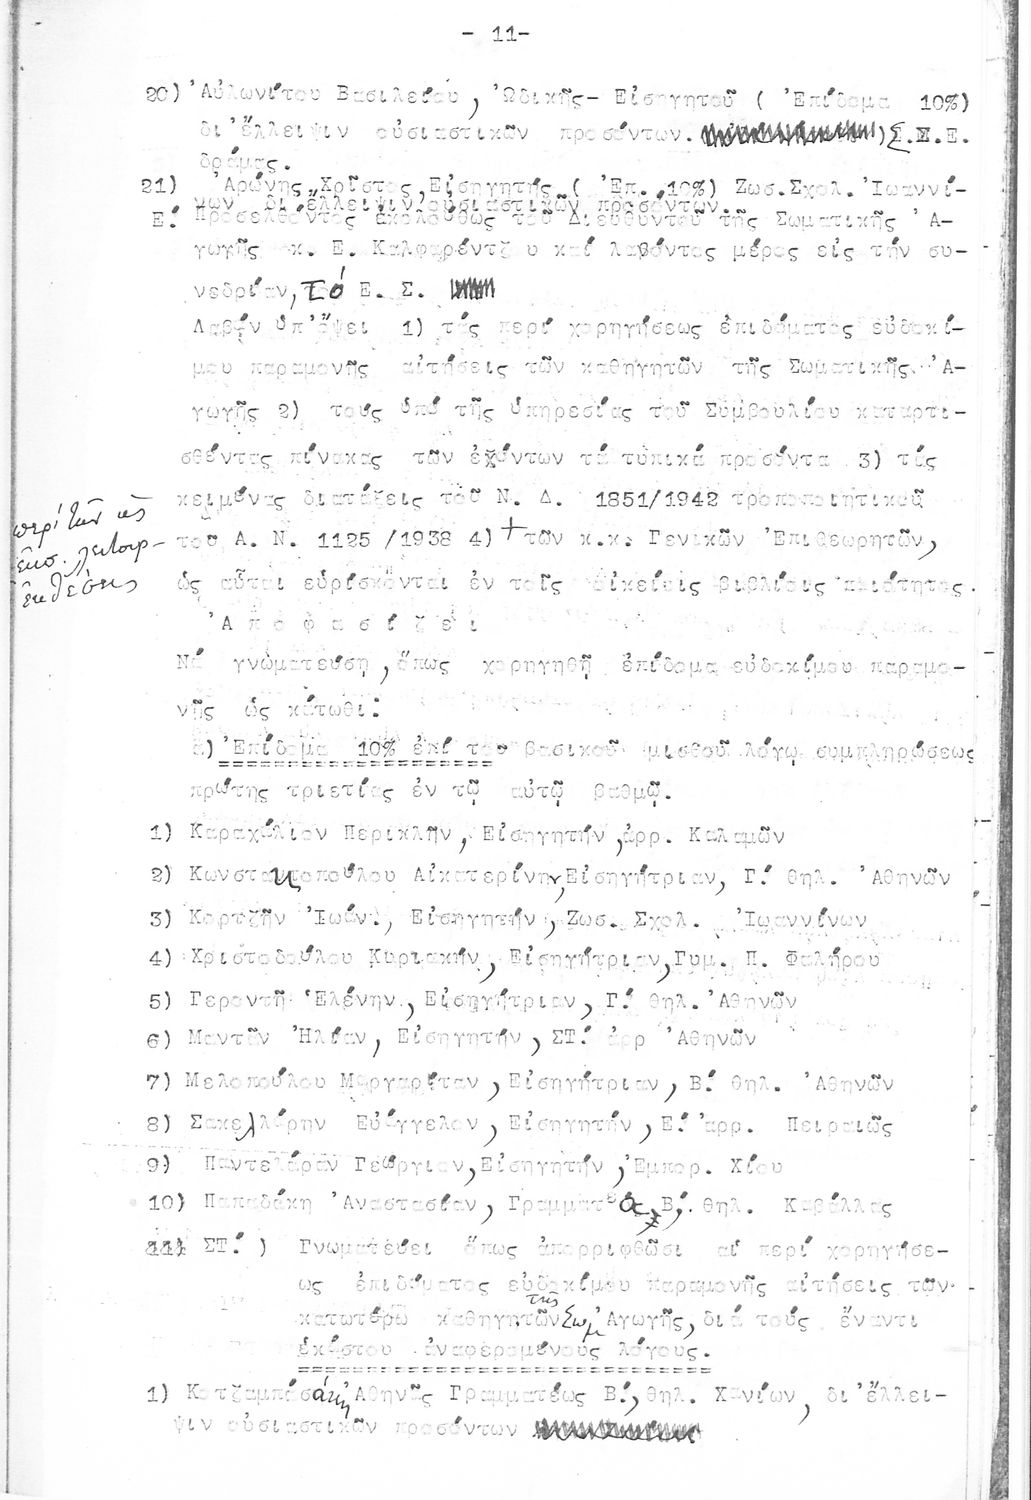 - 11-
20) Αὐλωνίτου Βασιλείου, Ὠδικῆς- Εἰσηγητοῦ ( Ἐπίδομα 10%)
δι'ἔλλειψιν οὐσιαστικῶν προσόντων. Σ.Π.Ε.
δράμας.
21) Ἀρώνης Χρῖστος, Εἰσηγητής ( Ἐπ. 10%) Ζωσ.Σχολ. Ἰωαννί-
νων δι'ἔλλειψιν οὐσιαστικῶν προσόντων.
Ε! Προσελθόντος ἀκολούθως τοῦ Διευθυντοῦ τῆς Σωματικῆς Ἀ-
γωγῆς κ. Ε. Καλφαρέντζου καί λαβόντος μέρος εἰς τήν συ-
νεδρίαν, τό Ε. Σ.
Λαβόν ὑπ'ὄψει 1) τάς περί χορηγήσεως ἐπιδόματος εὐδοκί-
μου παραμονῆς αἰτήσεις τῶν καθηγητῶν τῆς Σωματικῆς Ἀ-
γωγῆς 2) τούς ὑπό τῆς ὑπηρεσίας τοῦ Συμβουλίου καταρτι-
σθέντας πίνακας τῶν ἐχόντων τά τυπικά προσόντα 3) τάς
κειμένας διατάξεις τοῦ Ν. Δ. 1851/1942 τροποποιητικοῦ
περί τῶν ὡς
τοῦ Α. Ν. 1125 /1938 4) + τῶν κ.κ. Γενικῶν Ἐπιθεωρητῶν,
ἐκθέσεις
ὡς αὗται εὑρίσκονται ἐν τοῖς οἰκείοις βιβλίοις ποιότητος.
Ἀ π ο φ α σ ί ζ ε ι
Νά γνωματεύση, ὅπως χορηγηθῆ ἐπίδομα εὐδοκίμου παραμο-
νῆς ὡς κάτωθι:
α) Ἐπίδομα 10% ἐπί τοῦ βασικοῦ μισθοῦ λόγῳ συμπληρώσεως
πρώτης τριετίας ἐν τῷ αὐτῷ βαθμῷ.
1) Καραχάλιον Περικλῆν, Εἰσηγητήν, ἀρρ. Καλαμῶν
2) Κωνσταντοπούλου Αἰκατερίνην, Εἰσηγήτριαν, Γ! θηλ. Ἀθηνῶν
3) Κορτζῆν Ἰωάν., Εἰσηγητήν, Ζωσ. Σχολ. Ἰωαννίνων
4) Χριστοδούλου Κυριακήν, Εἰσηγήτριαν, Γυμ. Π. Φαλήρου
5) Γεροντῆ Ἑλένην, Εἰσηγήτριαν, Γ! θηλ. Ἀθηνῶν
6) Μαντᾶν Ἠλίαν, Εἰσηγητήν, ΣΤ! ἀρρ Ἀθηνῶν
7) Μελοπούλου Μαργαρίταν, Εἰσηγήτριαν, Β! θηλ. Ἀθηνῶν
8) Σακελλάρην Εὐάγγελον, Εἰσηγητήν, Ε! ἀρρ. Πειραιῶς
9) Παντελάραν Γεώργιον, Εἰσηγητήν, Ἐμπορ. Χίου
10) Παπαδάκη Ἀναστασίαν, Γραμματέα, Β! θηλ. Καβάλλας
ΣΤ! ) Γνωματεύει ὅπως ἀπορριφθῶσι αἱ περί χορηγήσε-
ως ἐπιδόματος εὐδοκίμου παραμονῆς αἰτήσεις τῶν
κατωτέρω καθηγητῶν τῆς Σωμ. Ἀγωγῆς, διά τούς ἔναντι
ἑκάστου ἀναφερομένους λόγους.
1) Κοτζαμπασάκη Ἀθηνᾶς Γραμματέως Β!, θηλ. Χανίων, δι'ἔλλει-
ψιν οὐσιαστικῶν προσόντων